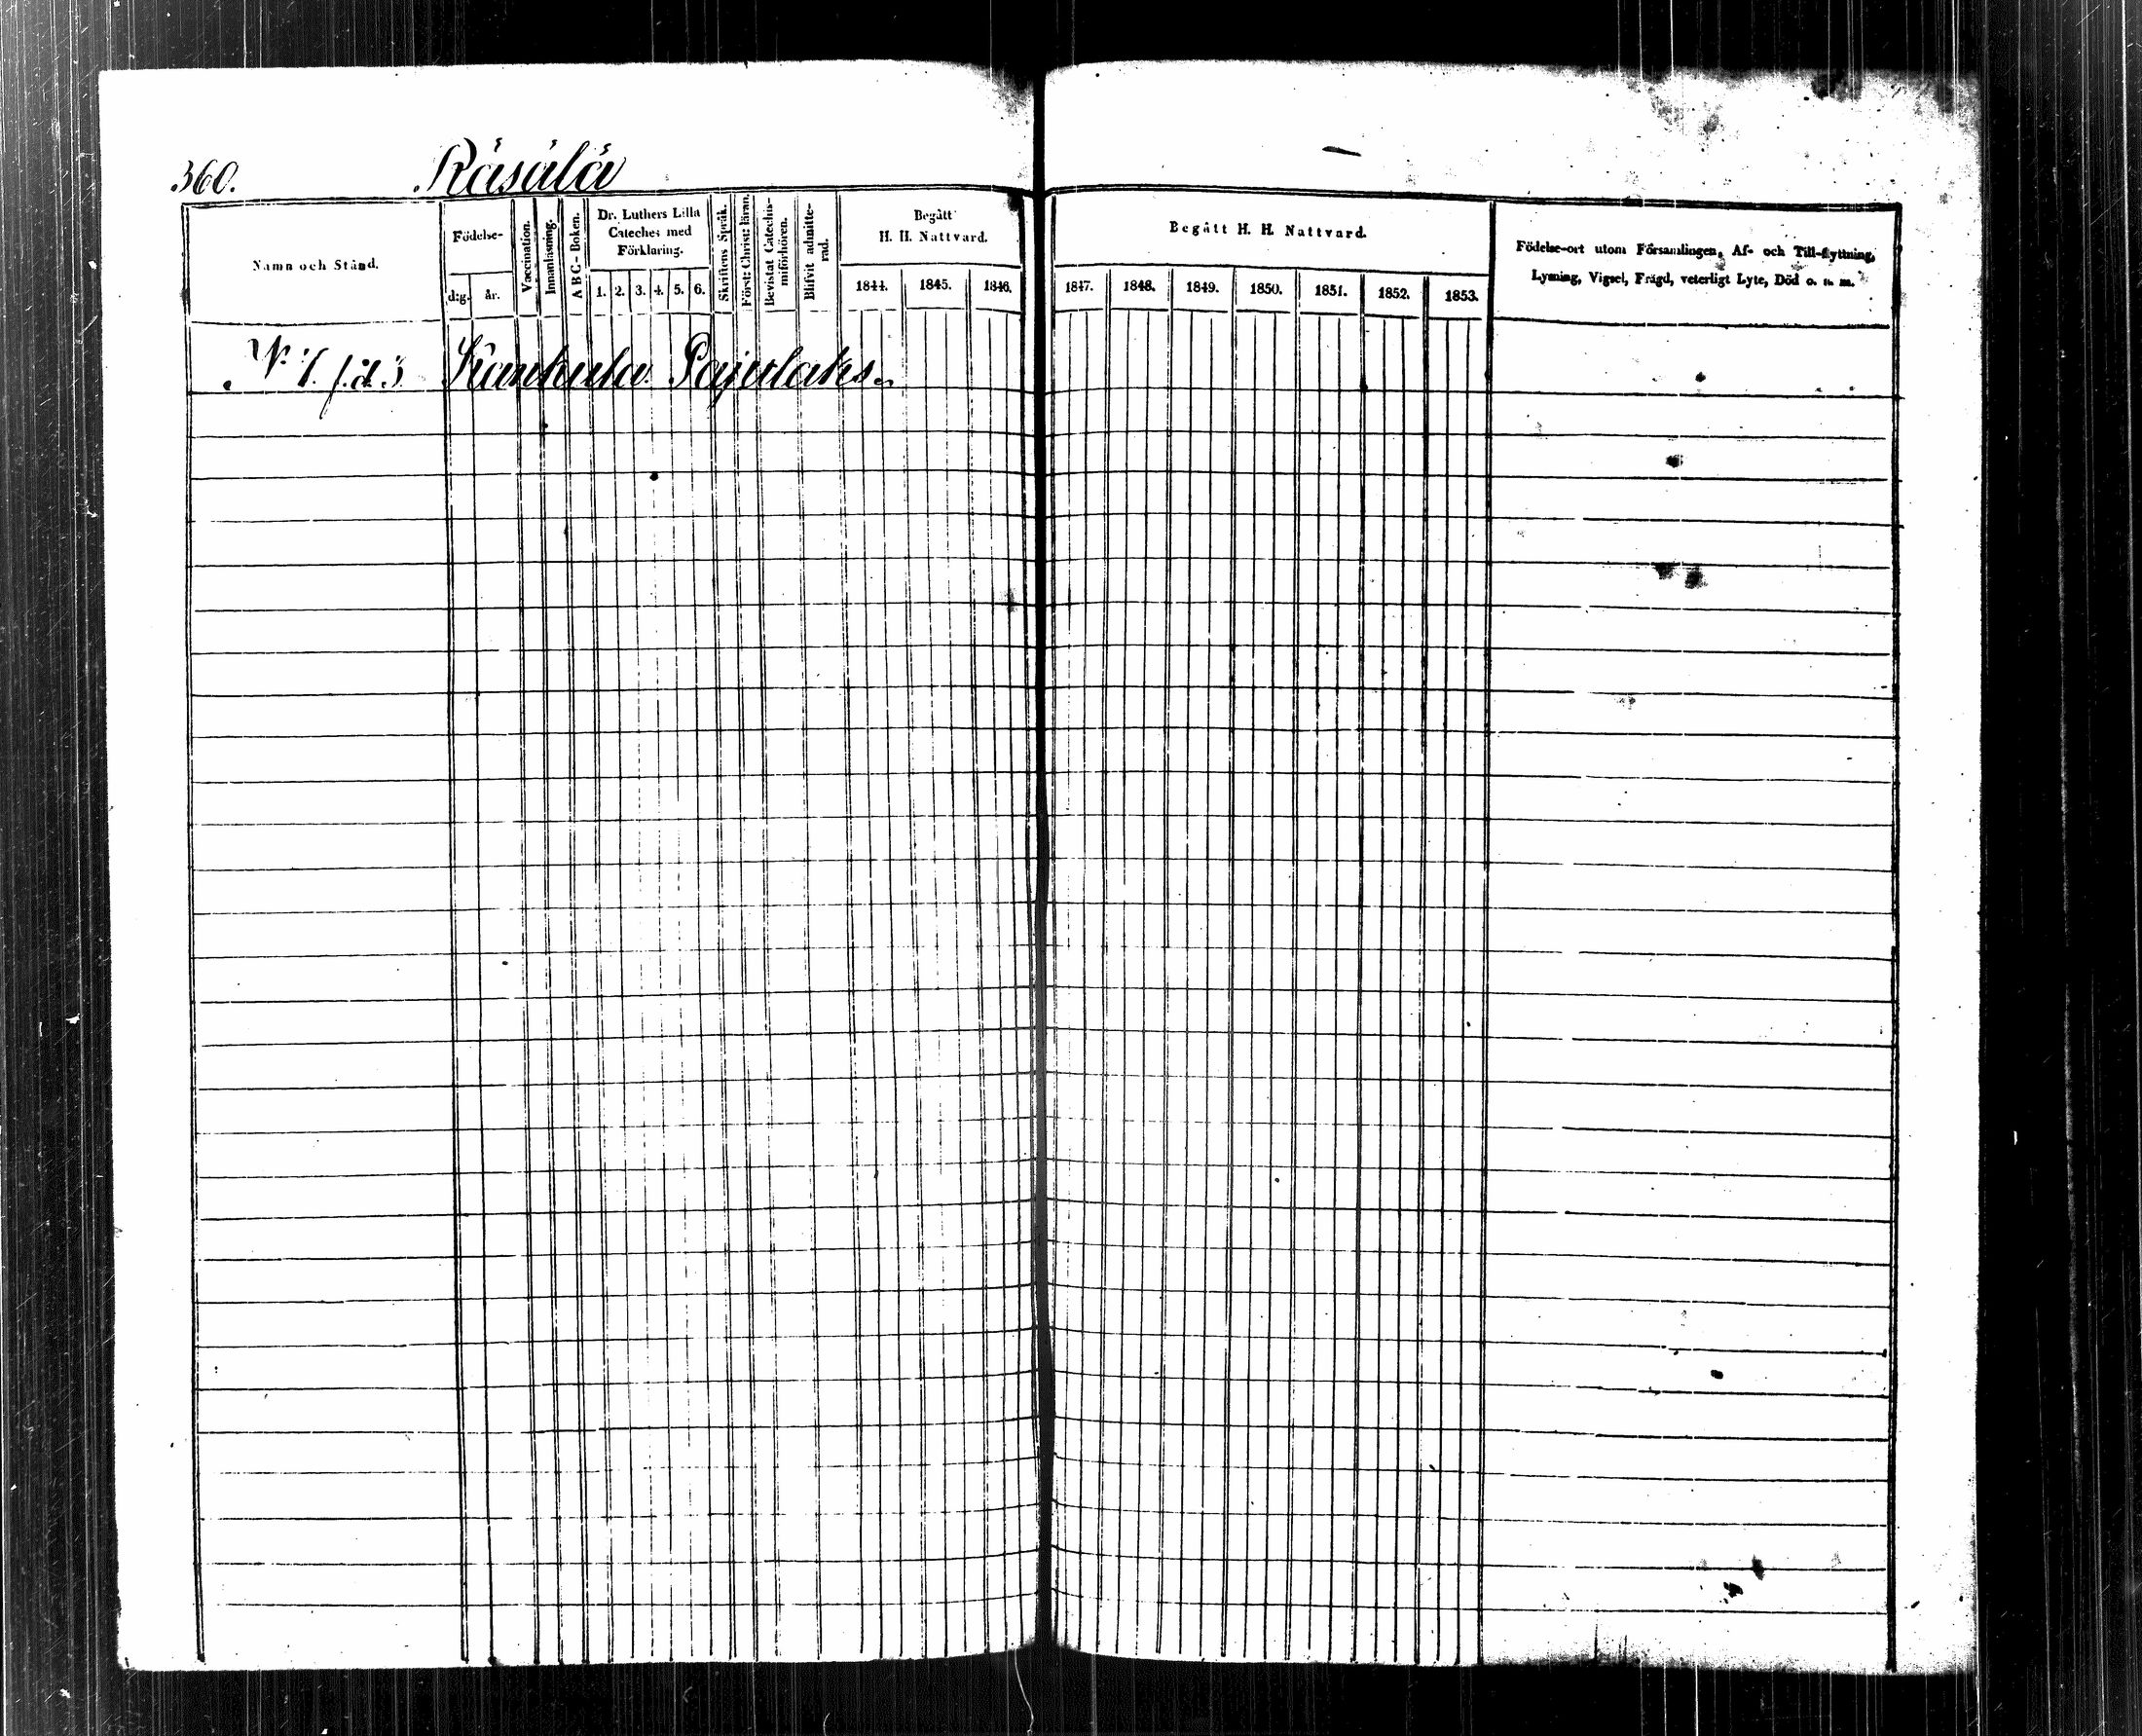 360. Räsälä
Namn och Stånd.
Födelse-
d:g. år.
Vaccination.
Innanläsning.
A B C - Boken.
Dr. Luthers Lilla
Cateches med
Förklaring.
1. 2. 3. 4. 5. 6.
Skriftens Språk.
Först: Christ: läran.
Bevistat Catechis-
miförhören.
Blifvit admitte-
rad.
Begått
H. H. Nattvard.
1844. 1845. 1846.
Begått H. H. Nattvard.
1847. 1848. 1849. 1850. 1851. 1852. 1853.
Födelse-ort utom Församlingen, Af- och Till-flyttning,
Lysning, Vigsel, Frägd, veterligt Lyte, Död o. s. m.
N:o 1. f.d. 3 Kaukula Pajulaks.